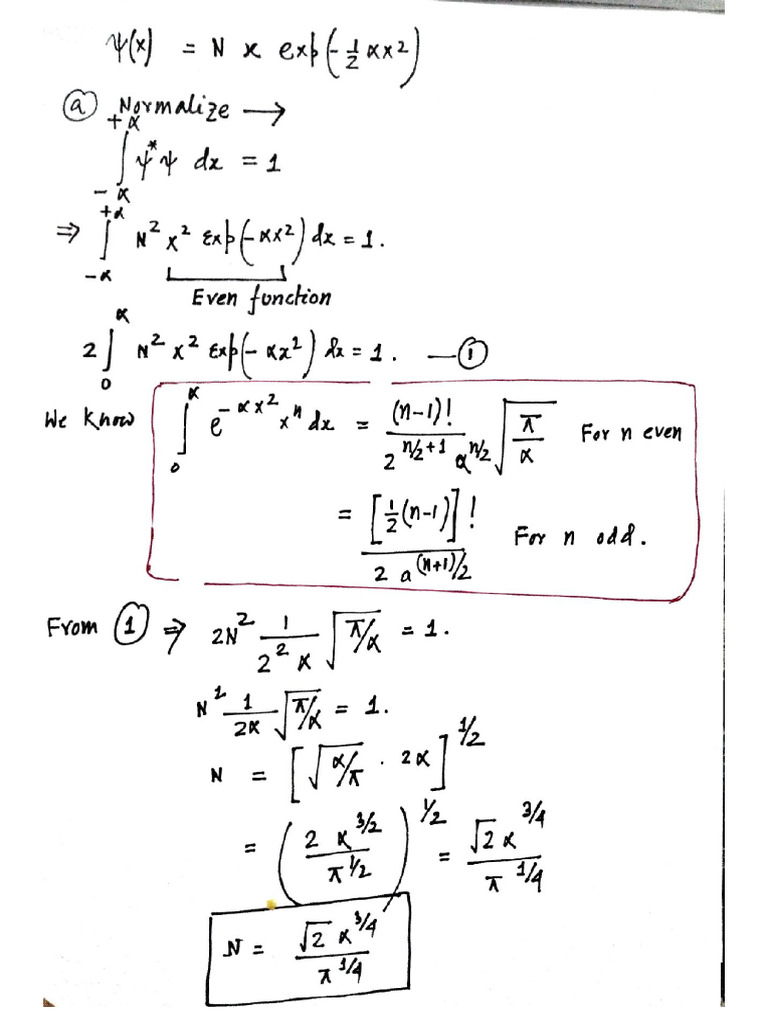 ψ(x) = N x exp(-1/2 αx²)
ⓐ Normalize →
∫_{-α}^{+α} ψ*ψ dx = 1
⇒ ∫_{-α}^{+α} N² x² Exp(-αx²) dx = 1.
Even function
2∫_0^α N² x² Exp(-αx²) dx = 1. —①
We know ∫_0^α e^{-αx²} x^n dx = (n-1)! / (2^{n/2+1} α^{n/2}) √(π/α) For n even
= [1/2(n-1)]! / (2 a^{(n+1)/2}) For n odd.
From ① ⇒ 2N² 1/(2² α) √(π/α) = 1.
N² 1/(2α) √(π/α) = 1.
N = [√(α/π) · 2α]^{1/2}
= (2 α^{3/2} / π^{1/2})^{1/2} = √2 α^{3/4} / π^{1/4}
N = √2 α^{3/4} / π^{1/4}